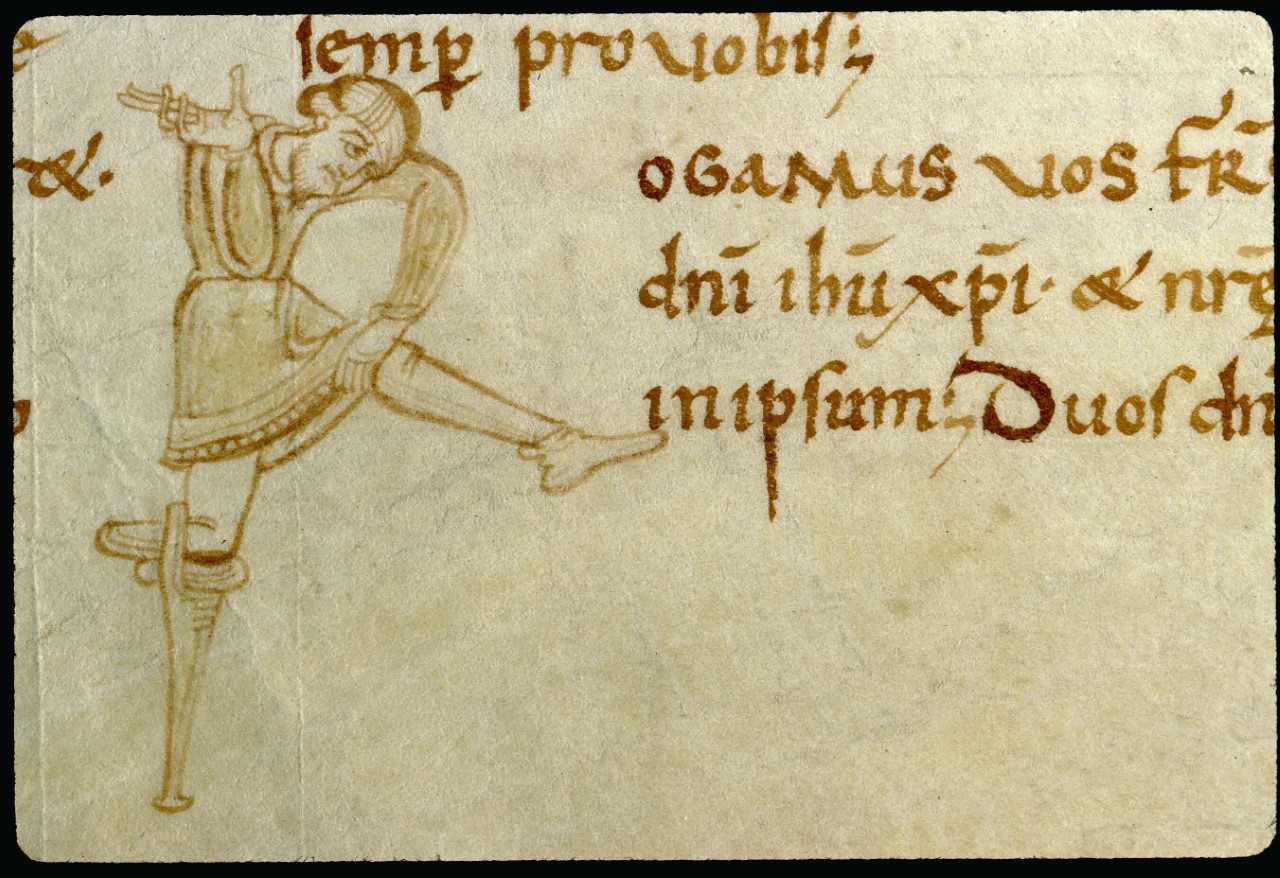 semp ꝓ uobis;
&.
OGAMUS UOS FR̄S
dnī ihū xp̄i· & nrę
in ipsum; Duos dn̄